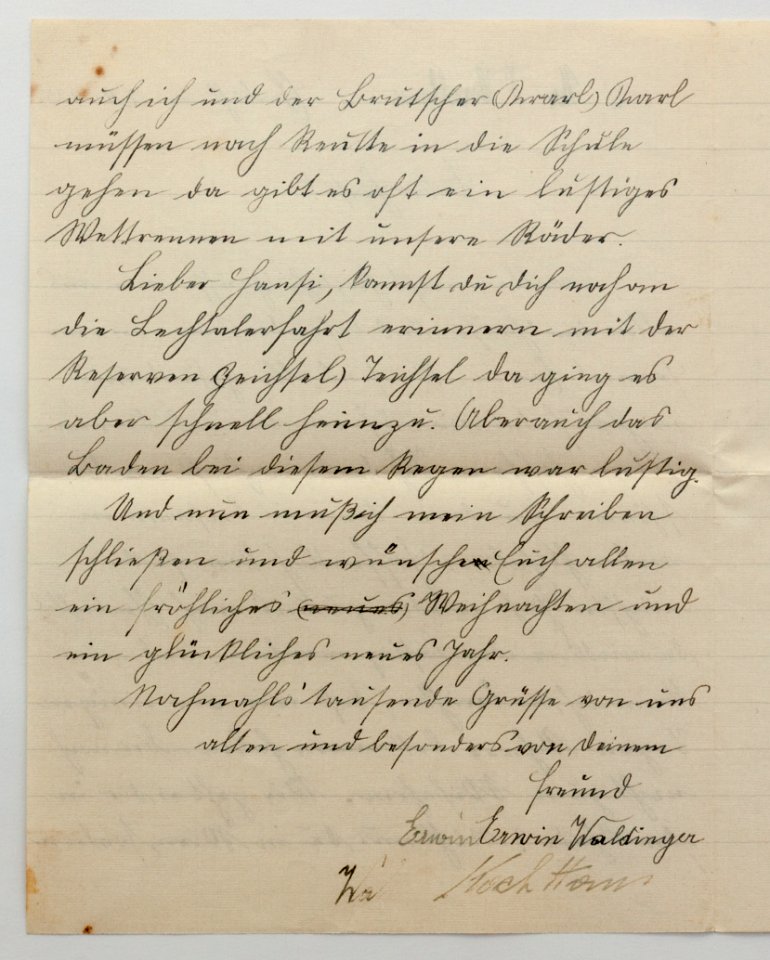 auch ich und der Brutscher (Krarl) Karl
müssen nach Reutte in die Schule
gehen da gibt es oft ein lustiges
Wettrennen mit unsere Räder.
Lieber Hansi, kannst du dich noch an
die Lechtalerfahrt erinnern mit der
Reserven (Zeichsel) Teichsel da ging es
aber schnell heimzu. Aber auch das
Baden bei diesem Regen war lustig.
Und nun muß ich mein Schreiben
schließen und wünsche Euch allen
ein fröhliches (neues) Weihnachten und
ein glückliches neues Jahr.
Nochmahls tausende Grüsse von uns
allen und besonders von deinem
Freund
Erwin Erwin Waldinger
Wa Koch Hans